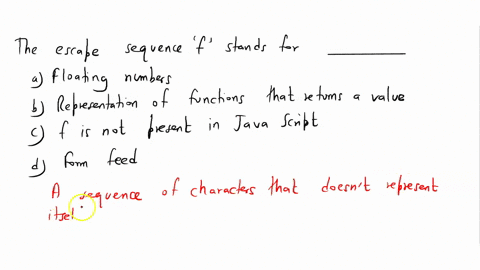 The escape sequence 'f' stands for ________
a) floating numbers
b) Representation of functions that returns a value
c) f is not present in Java Script
d) form feed
A sequence of characters that doesn't represent
itsel